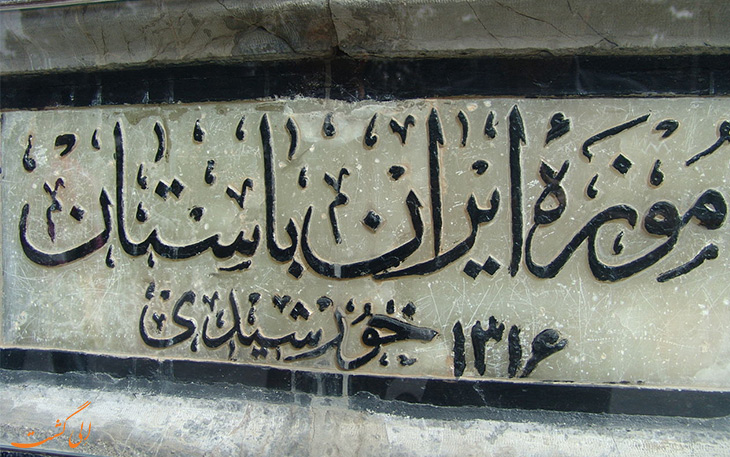 موزهٔ ایران باستان
۱۳۱۶ خورشیدی
الی گشت